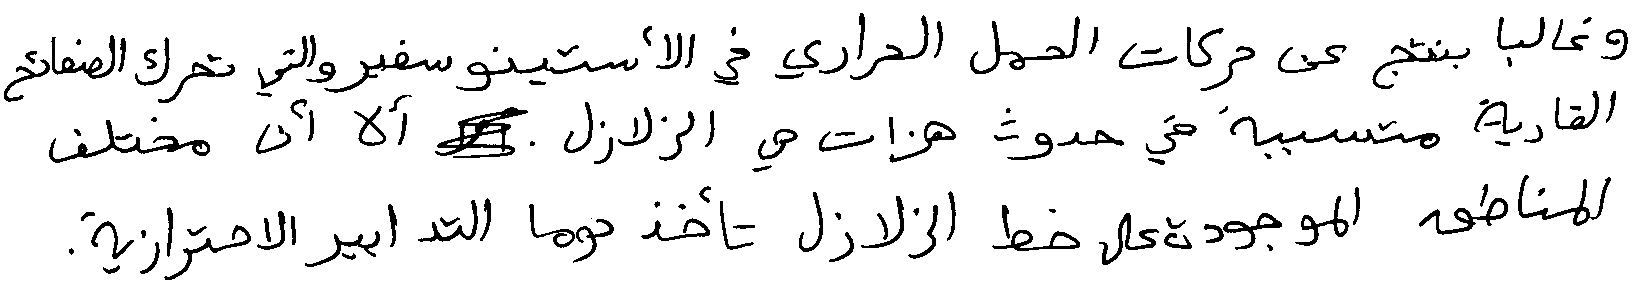 وغالبا ينتج عن حركات الحمل الحراري في الأستينوسفير والتي تحرك الصفائح
القارية متسببة في حدوث هزات هي الزلازل. ألا أن مختلف
المناطق الموجودة على خط الزلازل تأخذ دوما التدابير الاحترازية.